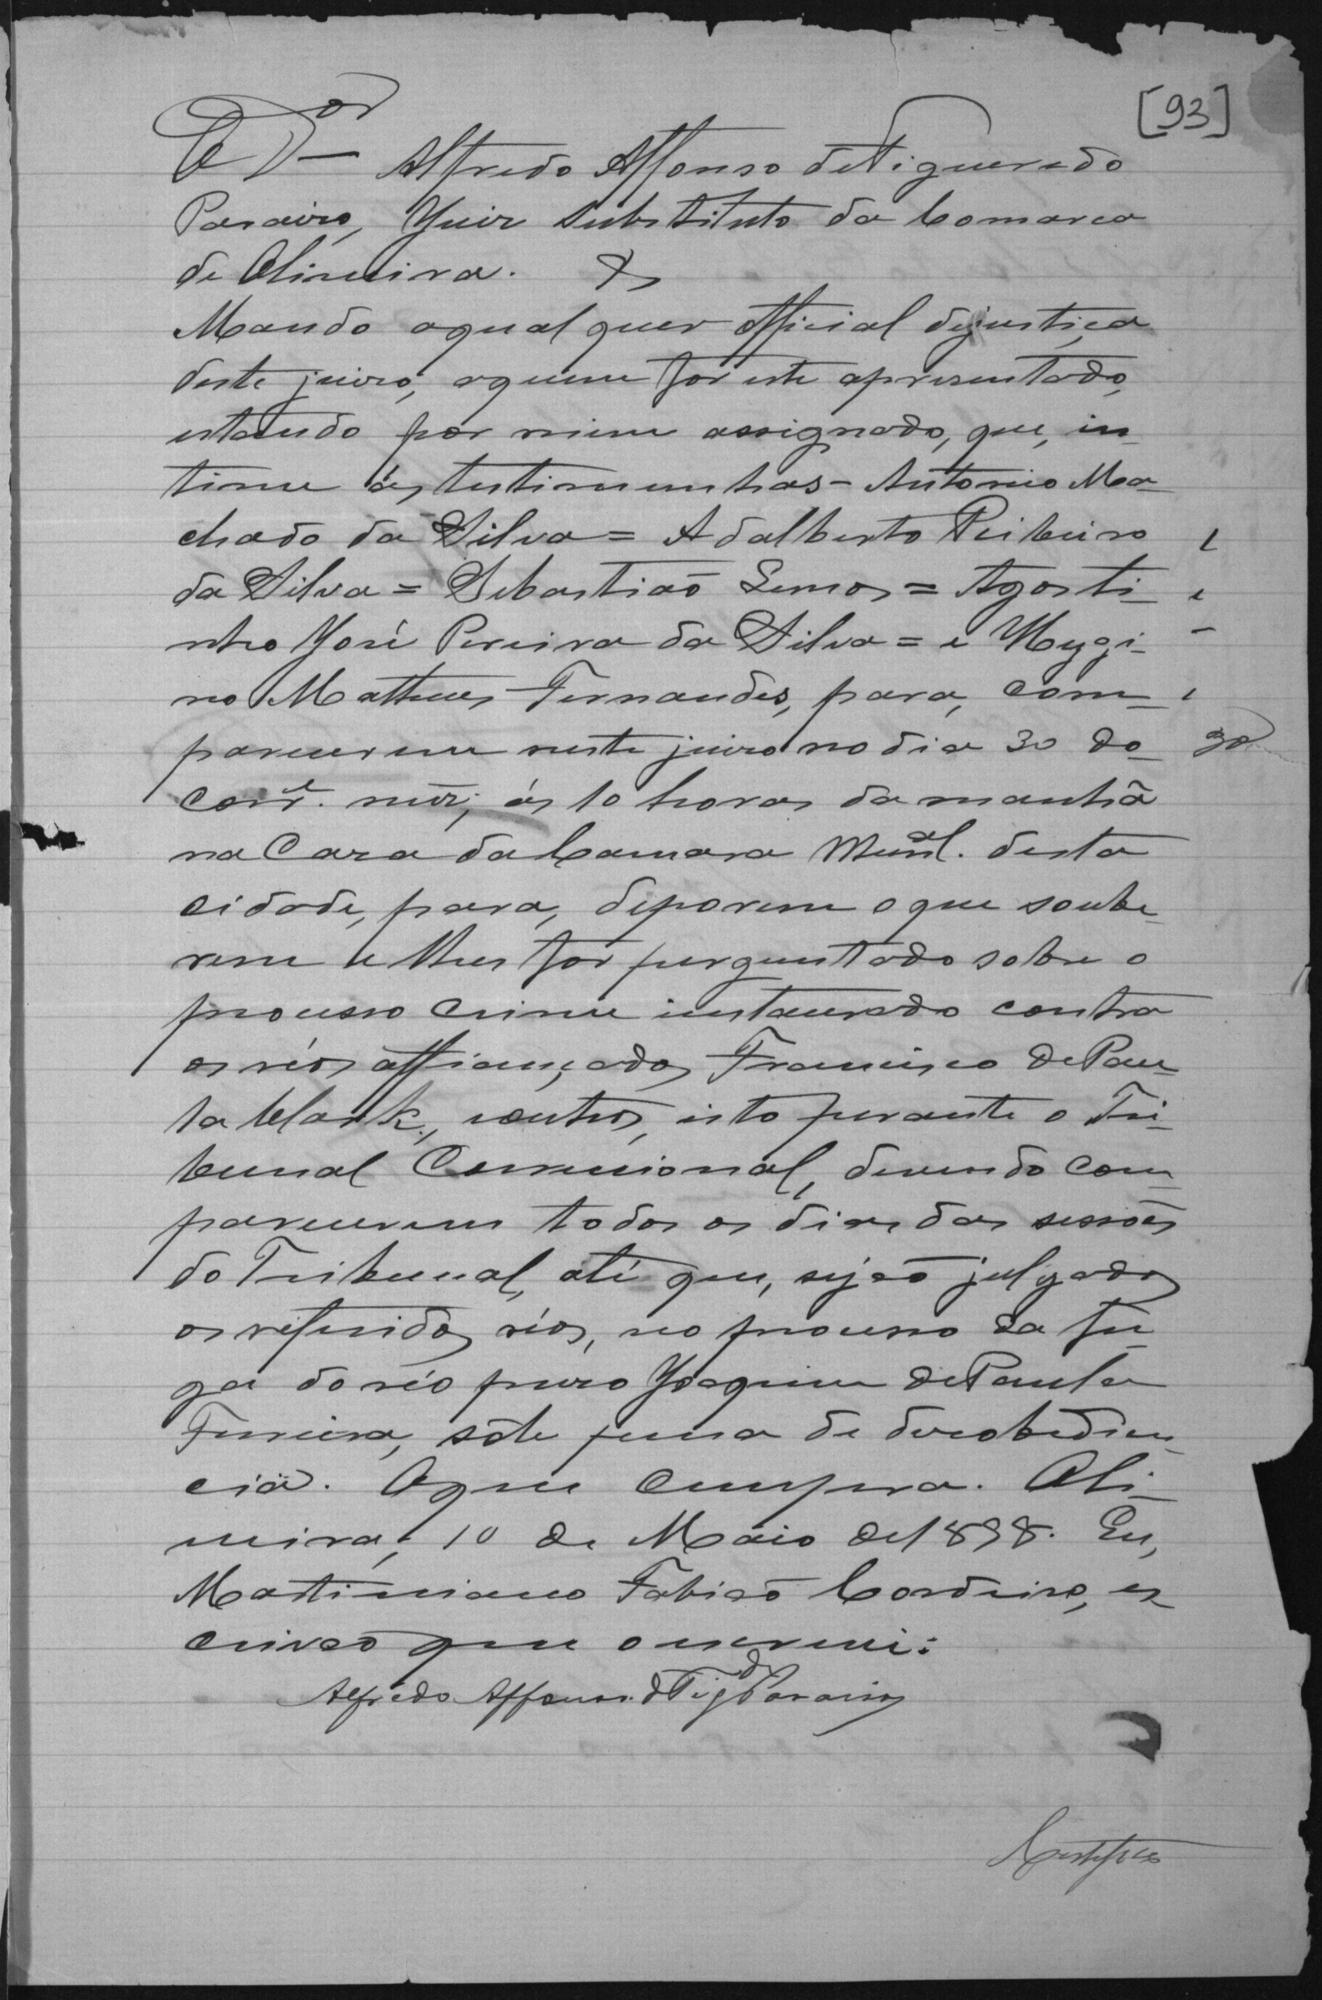 [93]
O Dor Alfredo Affonso de Figueredo
Paraizo, Juiz Substituto da Comarca
de Oliveira. &
Mando a qual quer official dejustiça
deste juizo, a quem fôr este apresentado,
estando por mim assignado, que, in-
time ás testimunhas - Antonio Ma-
chado da Silva = Adalberto Ribeiro
da Silva = Sebastião Lemos = Agosti-
nho José Pereira da Silva = e Hygi-
no Matheus Fernandes, para, com-
parecerem neste juizo no dia 30 do
30
corre. mez, ás 10 horas da manhã
na Caza da Camara Munal. desta
cidade, para, deporem o que soube-
rem e lhes fôr perguntado sobre o
processo crime instaurado contra
os réos affiançados Francisco de Pau-
la Clark, e outros, isto perante o Tri-
bunal Correcional, devendo com-
parecerem todos os dias das sessões
do Tribunal, até que, sejão julgados
os referidos réos, no processo da fu-
ga do réo prezo Joaquim de Paula
Ferreira, sob pena de desobedien-
cia. O que cumpra. Oli-
veira, 10 de Maio de 1898. Eu,
Martiniano Fabião Cordeiro, es-
crivão que o escrevi.
Alfredo Affonso d Figdo Paraizo
Certifico